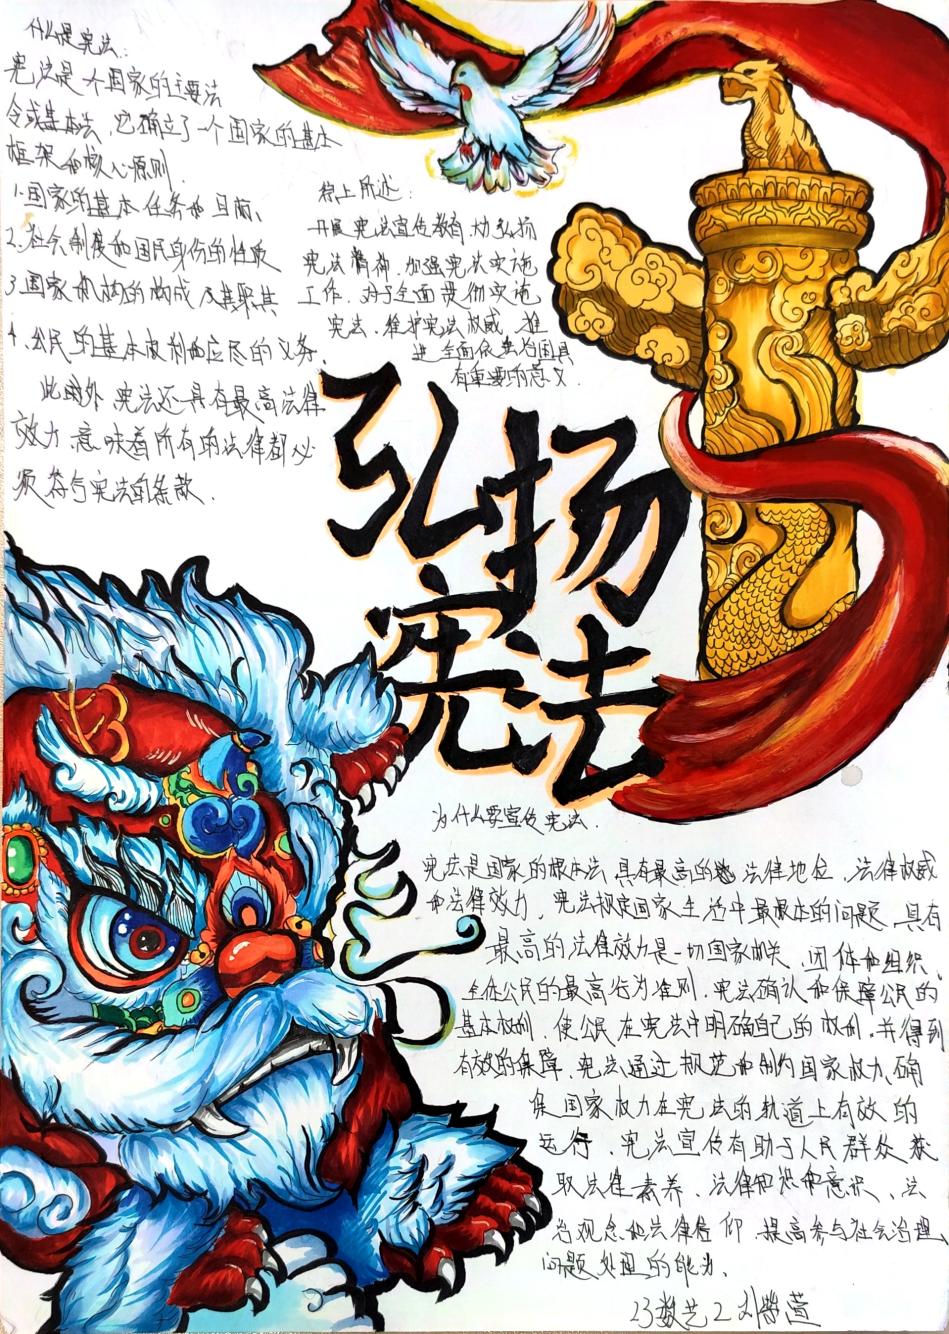 什么是宪法:
宪法是一个国家的主要法
令或基本法,它确立了一个国家的基本
框架和核心原则.
1.国家的基本任务和目标、
2.社会制度和国民身份的性质
3.国家机构的构成及其职其
4.公民的基本权利和应尽的义务.
此外 宪法还具有最高法律
效力 意味着所有的法律都必
须符与宪法的条款.
综上所述:
开展宪法宣传教育 大力弘扬
宪法精神.加强宪法实施
工作.对于全面贯彻实施
宪法.维护宪法权威.推
进全面依法治国具
有重要的意义.
弘扬
宪法
为什么要宣传宪法.
宪法是国家的根本法 具有最高的 法律地位.法律权威
和法律效力.宪法规定国家生活中最根本的问题 具有
最高的法律效力是一切国家机关、团体和组织、
全体公民的最高行为准则.宪法确认和保障公民的
基本权利.使公民在宪法中明确自己的权利.并得到
有效的保障.宪法通过规范和制约国家权力、确
保国家权力在宪法的轨道上有效的
运行.宪法宣传有助于人民群众获
取法律素养、法律知识和意识、法
治观念和法律信仰.提高参与社会治理、
问题处理的能力.
23数艺2